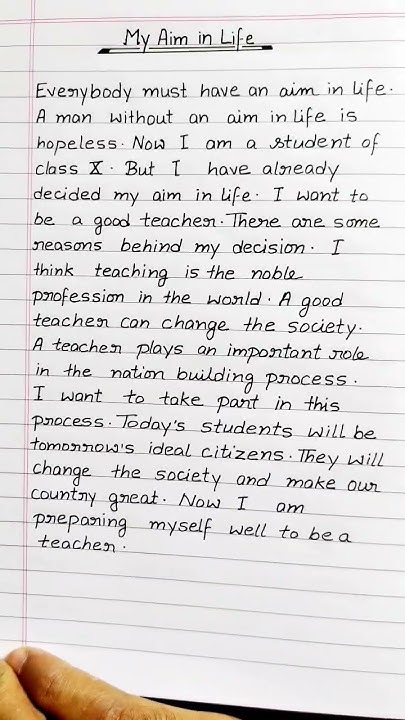 My Aim in Life
Everybody must have an aim in life.
A man without an aim in life is
hopeless. Now I am a student of
class X. But I have already
decided my aim in life. I want to
be a good teacher. There are some
reasons behind my decision. I
think teaching is the noble
profession in the world. A good
teacher can change the society.
A teacher plays an important role
in the nation building process.
I want to take part in this
process. Today's students will be
tomorrow's ideal citizens. They will
change the society and make our
country great. Now I am
preparing myself well to be a
teacher.